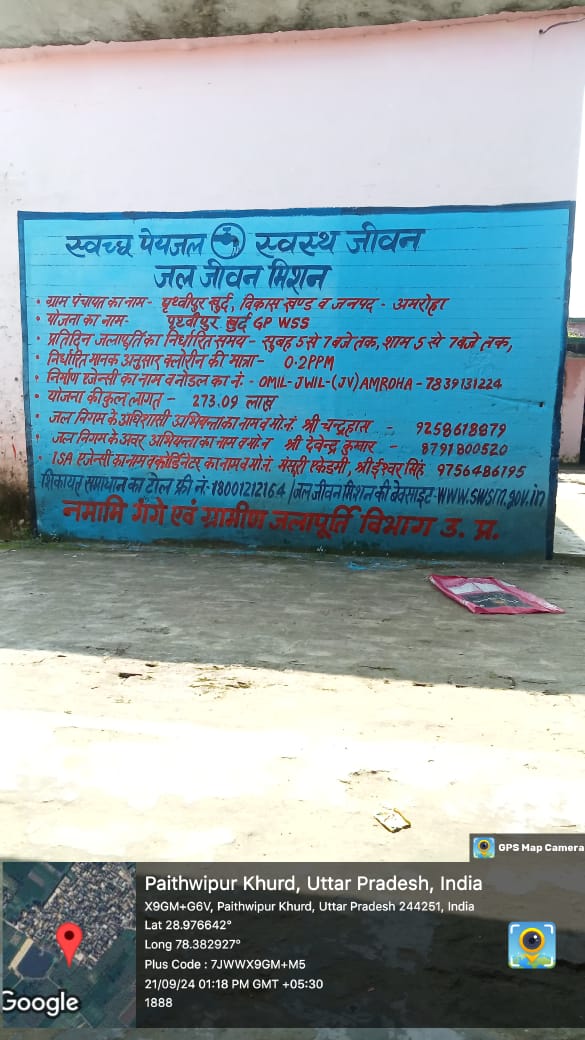 स्वच्छ पेयजल स्वस्थ जीवन
जल जीवन मिशन
• ग्राम पंचायत का नाम- पृथ्वीपुर खुर्द, विकास खण्ड व जनपद - अमरोहा
• योजना का नाम- पृथ्वीपुर खुर्द GP WSS
• प्रतिदिन जलापूर्ति का निर्धारित समय - सुबह 5 से 7 बजे तक, शाम 5 से 7 बजे तक,
• निर्धारित मानक अनुसार क्लोरीन की मात्रा- 0.2PPM
• निर्माण एजेन्सी का नाम व नोडल का नं:- OMIL-JWIL-(JV) AMROHA - 7839131224
• योजना की कुल लागत - 273.09 लाख
• जल निगम के अधिशासी अभियन्ता का नाम व मो.नं. श्री चन्द्रहास - 9258618879
• जल निगम के अवर अभियन्ता का नाम व मो.न श्री देवेन्द्र कुमार - 8791800520
• ISA एजेन्सी का नाम व कोर्डिनेटर का नाम व मो.नं. मंसूरी एकेडमी, श्री ईश्वर सिंह 9756486795
शिकायत समाधान का टोल फ्री नं:-18001212164 / जल जीवन मिशन की बेवसाइट-www.swsm.gov.in
नमामि गंगे एवं ग्रामीण जलापूर्ति विभाग उ. प्र.
GPS Map Camera
Paithwipur Khurd, Uttar Pradesh, India
X9GM+G6V, Paithwipur Khurd, Uttar Pradesh 244251, India
Lat 28.976642°
Long 78.382927°
Plus Code : 7JWWX9GM+M5
21/09/24 01:18 PM GMT +05:30
1888
Google